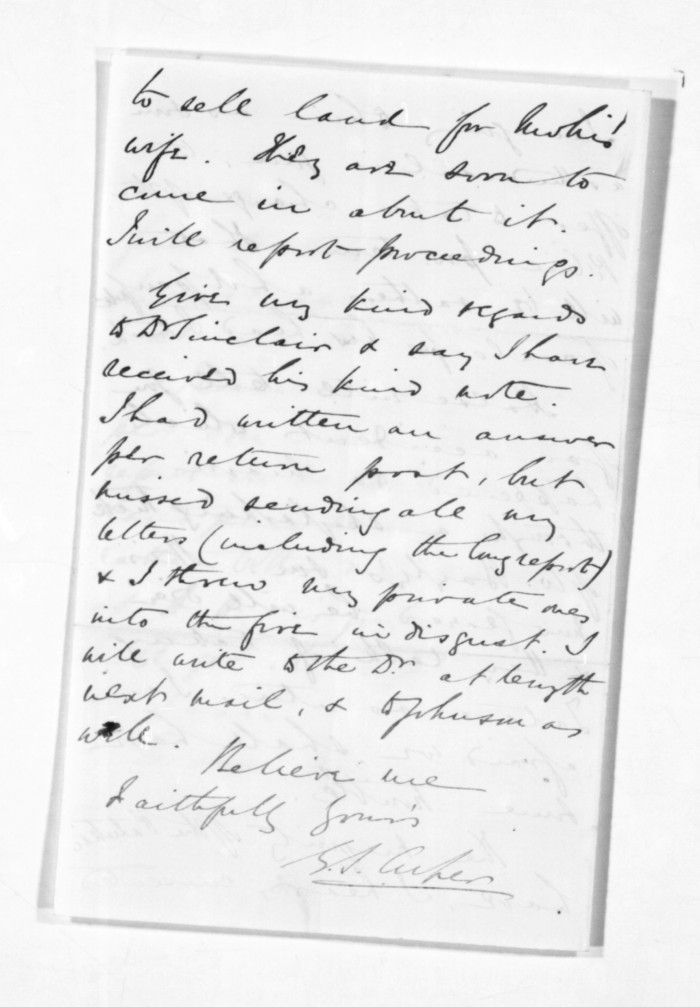 to sell land for Mohi's
wife. They are soon to
come in about it.
I will report proceedings.
Give my kind regards
to Dr Sinclair & say I have
received his kind note.
I had written an answer
per return post, but
missed sending all my
letters (including the long report)
& I threw my private ones
into the fire in disgust. I
will write to the Dr. at length
next mail, & to Johnson as
well.
Believe me
Faithfully Yours
G. S. Cooper